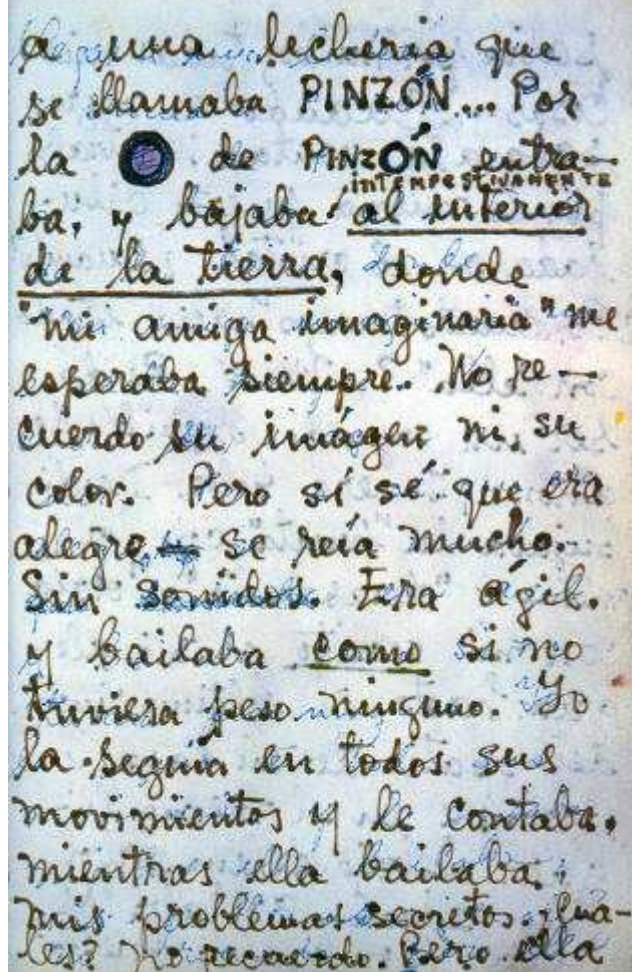 a una lechería que
se llamaba PINZÓN... Por
la O de PINZÓN entra—
INTEMPESTIVAMENTE
ba, y bajaba al interior
de la tierra, donde
"mi amiga imaginaria" me
esperaba siempre. No re—
cuerdo su imágen ni, su
color. Pero sí sé que era
alegre – se reía mucho.
Sin sonidos. Era ágil.
y bailaba como si no
tuviera peso ninguno. Yo
la seguía en todos sus
movimientos y le contaba,
mientras ella bailaba,
mis problemas secretos. ¿Cua-
les? No recuerdo. Pero ella